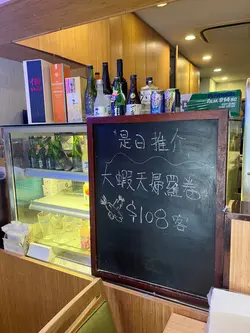 是日推介
大蝦天婦羅卷
$108客